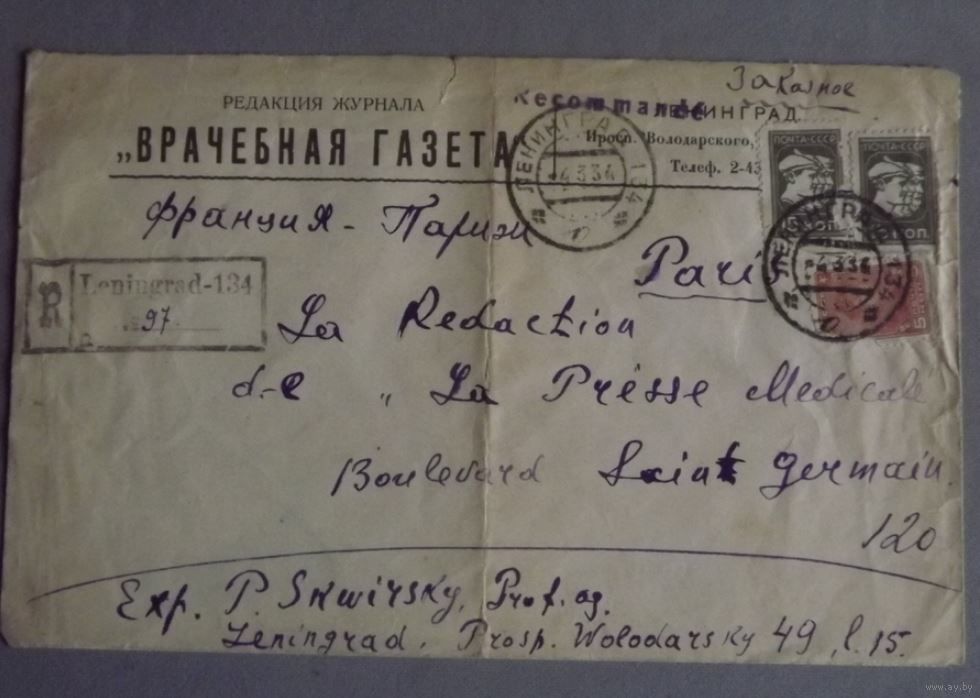 Заказное
РЕДАКЦИЯ ЖУРНАЛА
Recommandé
ЛЕНИНГРАД
„ВРАЧЕБНАЯ ГАЗЕТА
Володарского,
Телеф. 2-43
ПОЧТА·СССР
ПОЧТА·СССР
КОП.
КОП.
ЛЕНИНГРАД 134
4.3.34
ЛЕНИНГРАД 134
4.3.34
Франция - Париж
Paris
R
Leningrad-134
№ 97
La Redaction
d-e „La Presse Medicale"
Boulevard Saint Germain
120
Exp. P. Skwirsky, Prof. ag.
Leningrad, Prosp. Wolodarsky 49, l. 15.
www.ay.by